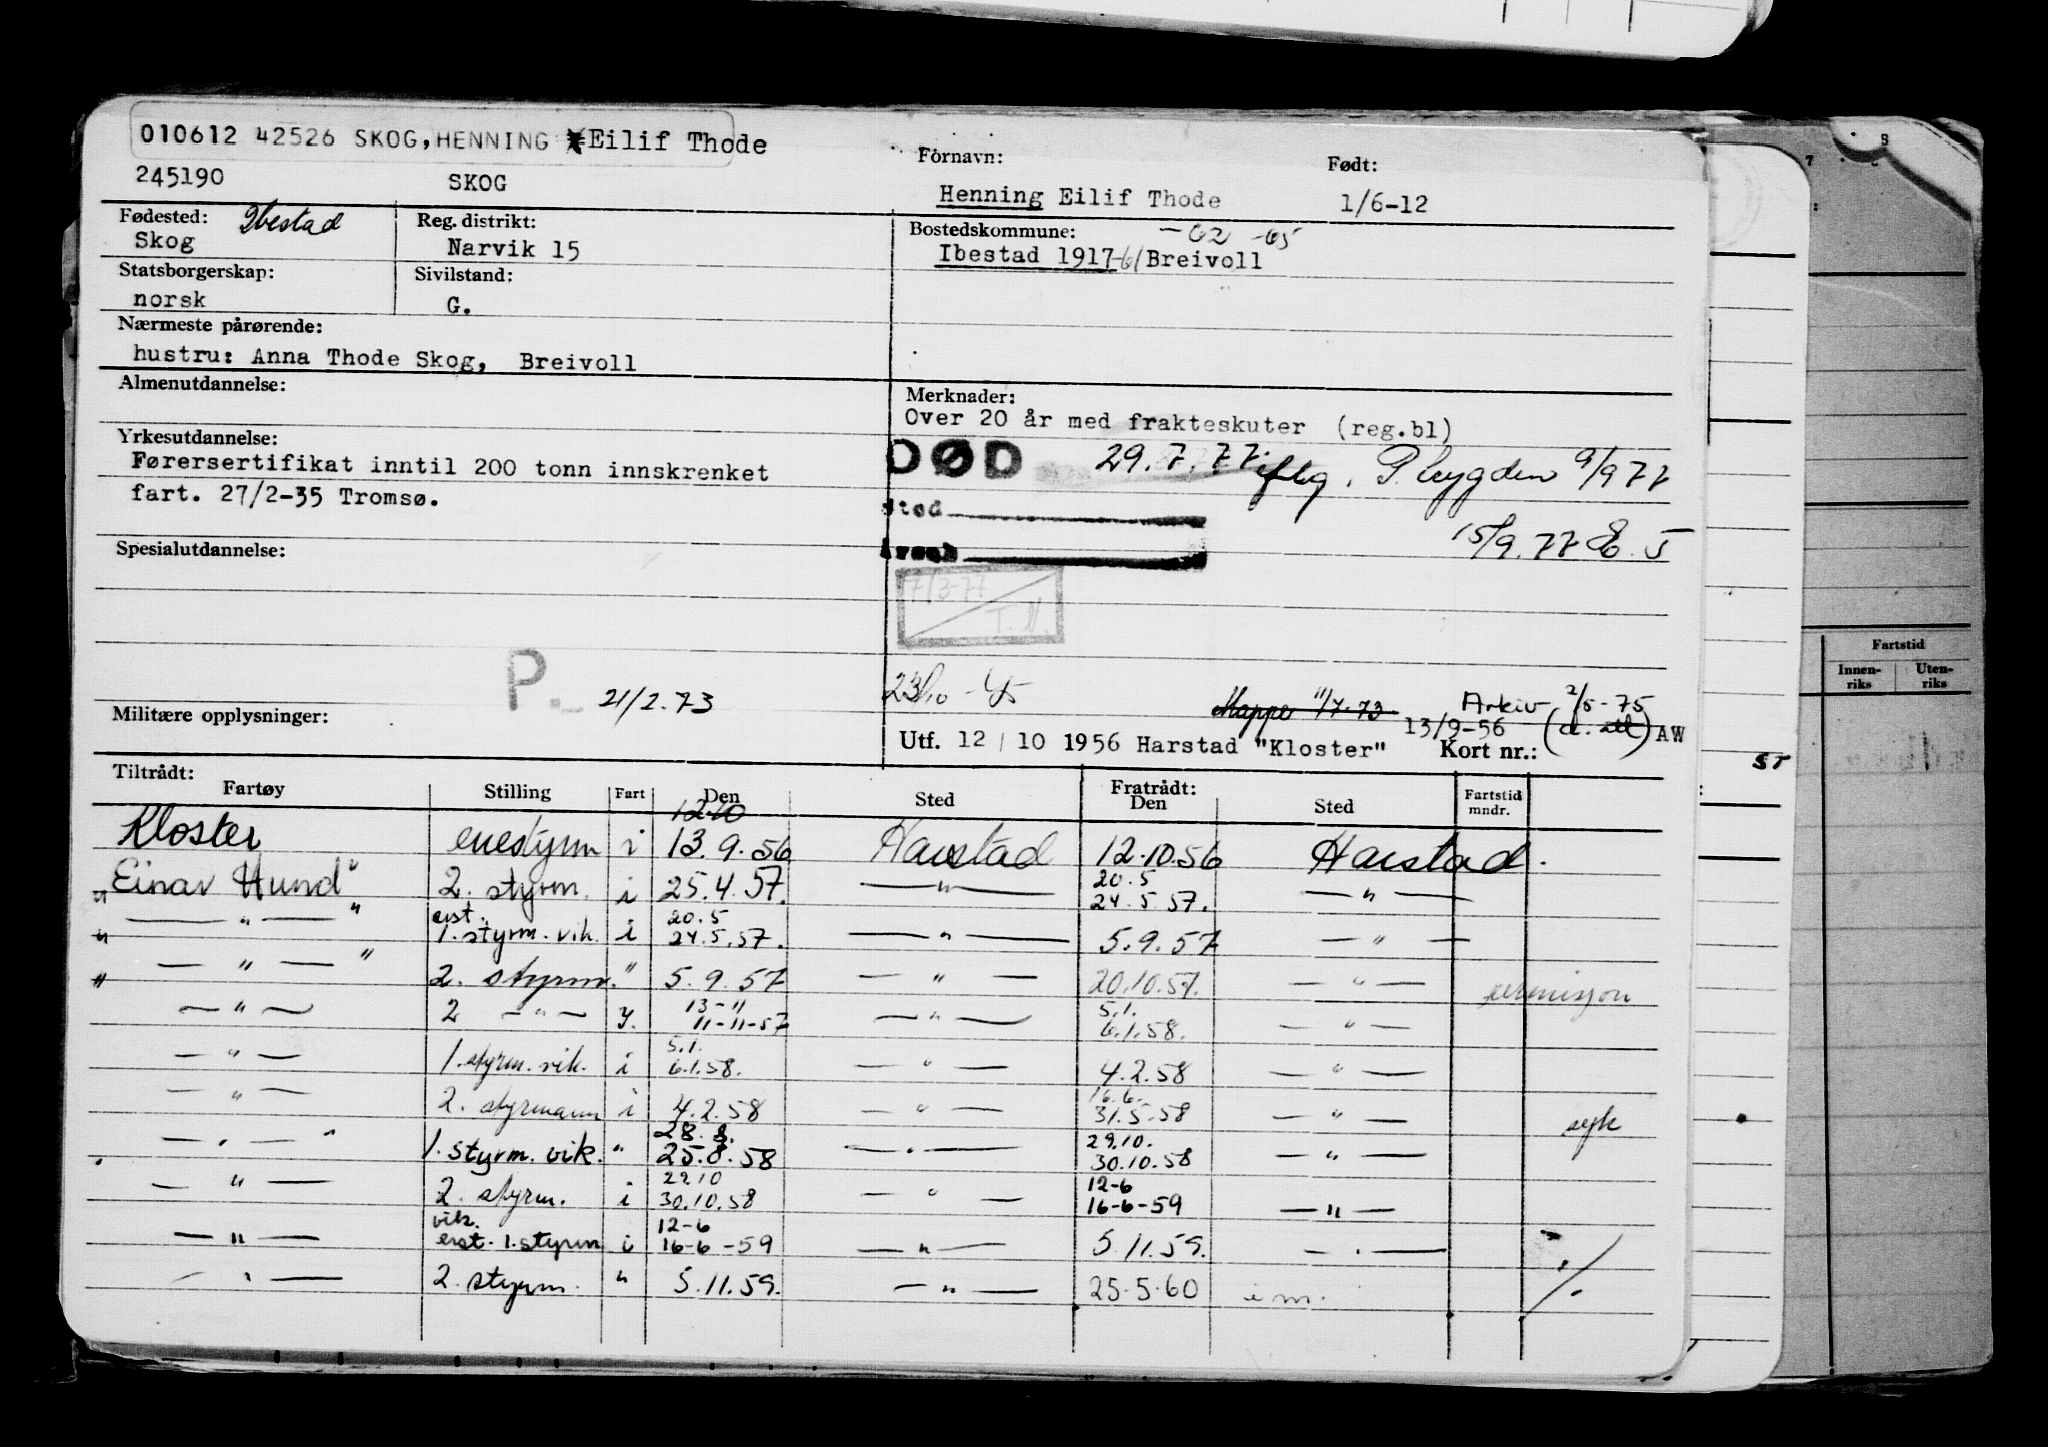 010612 42526 SKOG,HENNING Eilif Thode
245190 SKOG
Fornavn: Født:
Henning Eilif Thode 1/6-12
Fødested: Ibestad
Skog
Reg. distrikt:
Narvik 15
Bostedskommune: -62 -65
Ibestad 1917-61 Breivoll
Statsborgerskap:
norsk
Sivilstand:
G.
Nærmeste pårørende:
hustru: Anna Thode Skog, Breivoll
Almenutdannelse:
Yrkesutdannelse:
Førersertifikat inntil 200 tonn innskrenket
fart. 27/2-35 Tromsø.
Spesialutdannelse:
P. 21/2.73
Militære opplysninger:
Merknader:
Over 20 år med frakteskuter (reg.bl)
DØD 29.7.77 iflg. P. bygden 9/9 77
sted
årsak
15/9.77 E. J
7/3-77
T. N.
23/10 - 45
Mappe 11/7-73 Arkiv 2/5-75
13/9-56
Utf. 12/10 1956 Harstad "Kloster" Kort nr.: (d. att) AW
Tiltrådt: Fratrådt:
Fartøy Stilling Fart Den Sted Den Sted Fartstid mndr.
12.10
Kloster enestyrm i 13.9.56 Harstad 12.10.56 Harstad.
20.5
"Einar Hund" 2. styrm. i 25.4.57. — " — 24.5 57. — " —
erst. 20.5
" — " — " 1. styrm. vik. i 24.5.57. — " — 5.9.57 — " —
" — " — " 2. styrm. " 5.9.57 — " — 20.10.57. — " — permisjon
13-11 5.1.
— " — 2 — " — y. 11-11-57 — " — 6.1.58. — " —
5.1.
— " — 1. styrm. vik. i 6.1.58. — " — 4.2.58 — " —
16.6.
— " — 2. styrmann i 4.2.58 — " — 31.5.58 — " — syk
28.8. 29.10.
— " — " 1. styrm. vik. " 25.8.58 — " — 30.10.58 — " —
29.10 12-6
— " — 2. styrm. i 30.10.58 — " — 16-6-59 — " —
vik. 12-6
— " — erst. 1. styrm i 16-6-59 — " — 5.11.59. — " —
— " — 2. styrm. " 5.11.59. — " — 25.5.60 i m.
./.
Fartstid
Innen-riks Uten-riks
ST